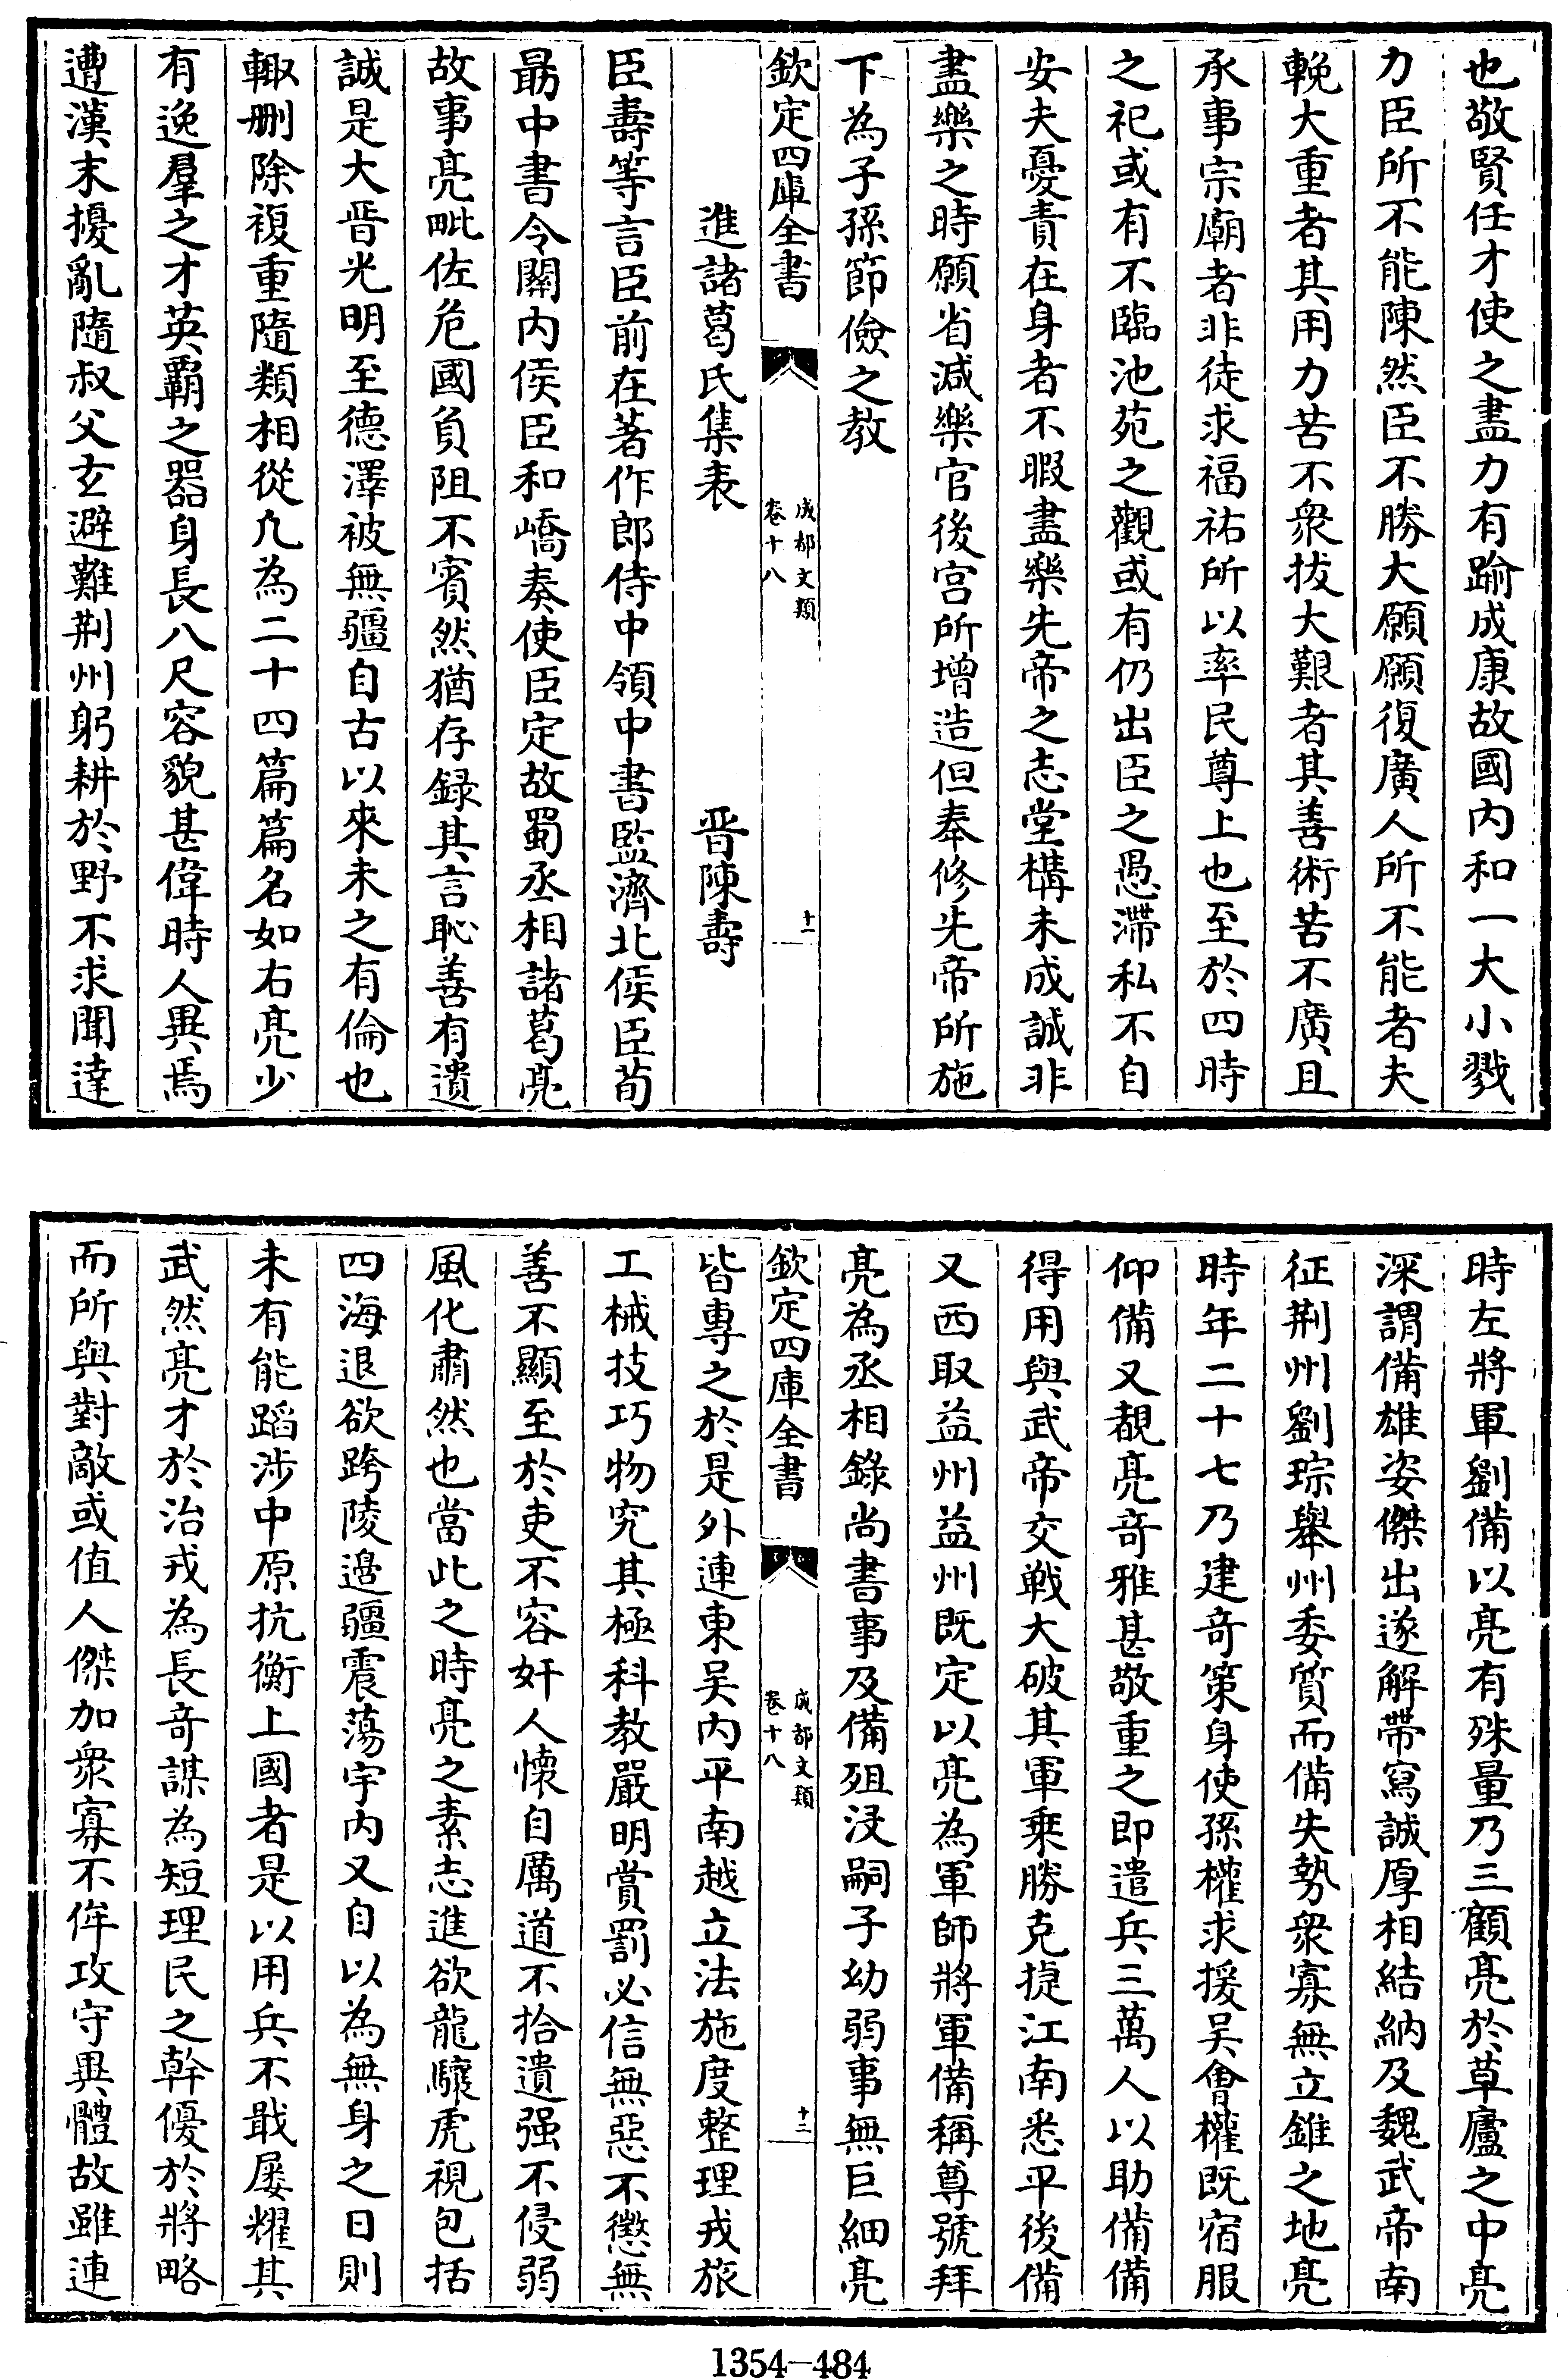 也敬賢任才使之盡力有踰成康故國内和一大小戮
力臣所不能陳然臣不勝大願願復廣人所不能者夫
輓大重者其用力苦不衆拔大艱者其善術苦不廣且
承事宗廟者非徒求福祐所以率民尊上也至於四時
之祀或有不臨池苑之觀或有仍出臣之愚滯私不自
安夫憂責在身者不暇盡樂先帝之志堂構未成誠非
盡樂之時願省減樂官後宫所增造但奉修先帝所施
下為子孫節儉之教
欽定四庫全書
成都文類
卷十八
十一
進諸葛氏集表
晋陳壽
臣壽等言臣前在著作郎侍中領中書監濟北侯臣荀
勗中書令關内侯臣和嶠奏使臣定故蜀丞相諸葛亮
故事亮毗佐危國負阻不賓然猶存録其言恥善有遺
誠是大晋光明至德澤被無疆自古以來未之有倫也
輙刪除複重隨類相從凡為二十四篇篇名如右亮少
有逸羣之才英霸之器身長八尺容貌甚偉時人異焉
遭漢末擾亂隨叔父玄避難荆州躬耕於野不求聞達
時左將軍劉備以亮有殊量乃三顧亮於草廬之中亮
深謂備雄姿傑出遂解帶寫誠厚相結納及魏武帝南
征荆州劉琮舉州委質而備失勢衆寡無立錐之地亮
時年二十七乃建奇策身使孫權求援吴會權既宿服
仰備又覩亮奇雅甚敬重之即遣兵三萬人以助備備
得用與武帝交戰大破其軍乗勝克捷江南悉平後備
又西取益州益州既定以亮為軍師將軍備稱尊號拜
亮為丞相錄尚書事及備殂没嗣子幼弱事無巨細亮
欽定四庫全書
成都文類
卷十八
十二
皆專之於是外連東吴内平南越立法施度整理戎旅
工械技巧物究其極科教嚴明賞罰必信無惡不懲無
善不顯至於吏不容奸人懷自厲道不拾遺强不侵弱
風化肅然也當此之時亮之素志進欲龍驤虎視包括
四海退欲跨陵邊疆震蕩宇内又自以為無身之日則
未有能蹈涉中原抗衡上國者是以用兵不戢屢耀其
武然亮才於治戎為長奇謀為短理民之幹優於將略
而所與對敵或值人傑加衆寡不侔攻守異體故雖連
1354—484